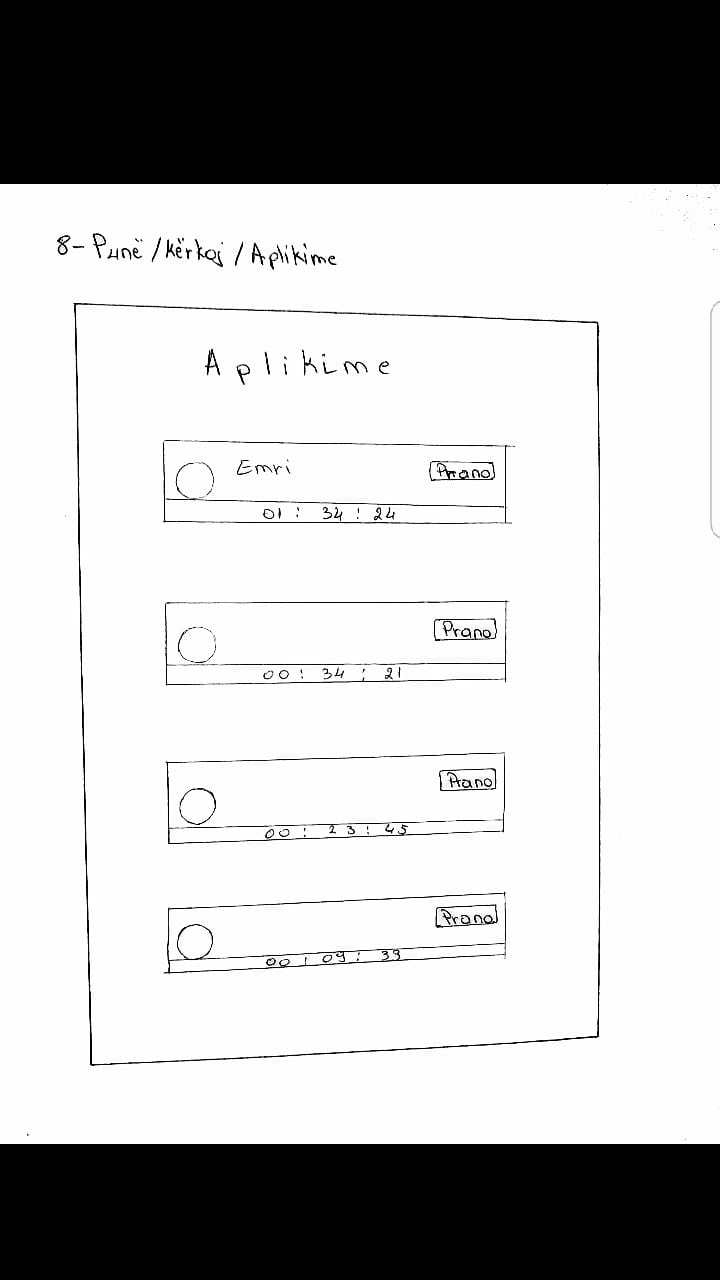 8- Punë /kërkoj / Aplikime
Aplikime
Emri
Prano
01 : 34 : 24
Prano
00 : 34 : 21
Prano
00 : 23 : 45
Prano
00 : 09 : 39